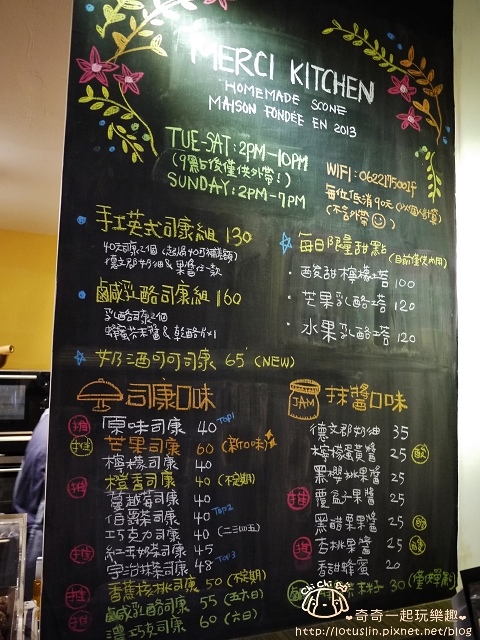 MERCI KITCHEN
HOMEMADE SCONE
MAISON FONDÉE EN 2013
TUE-SAT:2PM-10PM
(9點後僅供外帶!)
SUNDAY:2PM-7PM
WIFI:
每位低消90元
(不含外帶)
手工英式司康組 130
40元司康2個
德文郡奶油&果醬任一款
鹹乳酪司康組 160
乳酪司康2個
奶酒可可司康 65 (NEW)
每日限量甜點(目前僅供內用)
・酸甜檸檬塔 100
・芒果乳酪塔 120
・水果乳酪塔 120
司康口味
推 原味司康 40 Top1
推 芒果司康 60 (新口味)
檸檬司康 40
推 橙香司康 40 (不定期)
蔓越莓司康 40
伯爵茶司康 40 Top2
巧克力司康 40 (二三四五)
推 紅玉奶茶司康 45
宇治抹茶司康 48 Top3
香蕉核桃司康 50 (不定期)
鹹乳酪司康 55 (五六日)
濃巧克司康 60 (六日)
JAM 抹醬口味
德文郡奶油 35
檸檬蛋黃醬 25 酸
黑櫻桃果醬 25
推 覆盆子果醬 25
黑醋栗果醬 25 酸
推 杏桃果醬 25 酸
香甜蜂蜜 20
30 (僅供單點)
chi chi
❤奇奇一起玩樂趣❤
http://lotuslin.pixnet.net/blog